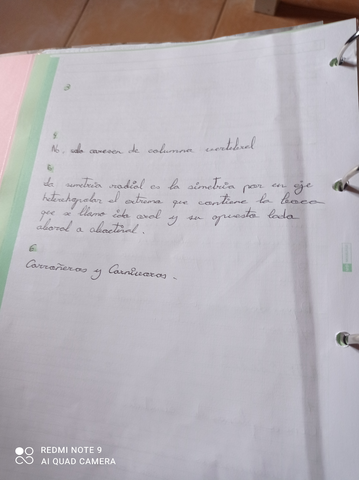 No, carecen de columna vertebral
La simetria radial es la simetria por un eje
heteropolar el extremo que contiene la boca
que se llama lado oral y su opuesto lado
aboral o abactinal.
Carroñeros y Carnivoros.
REDMI NOTE 9
AI QUAD CAMERA